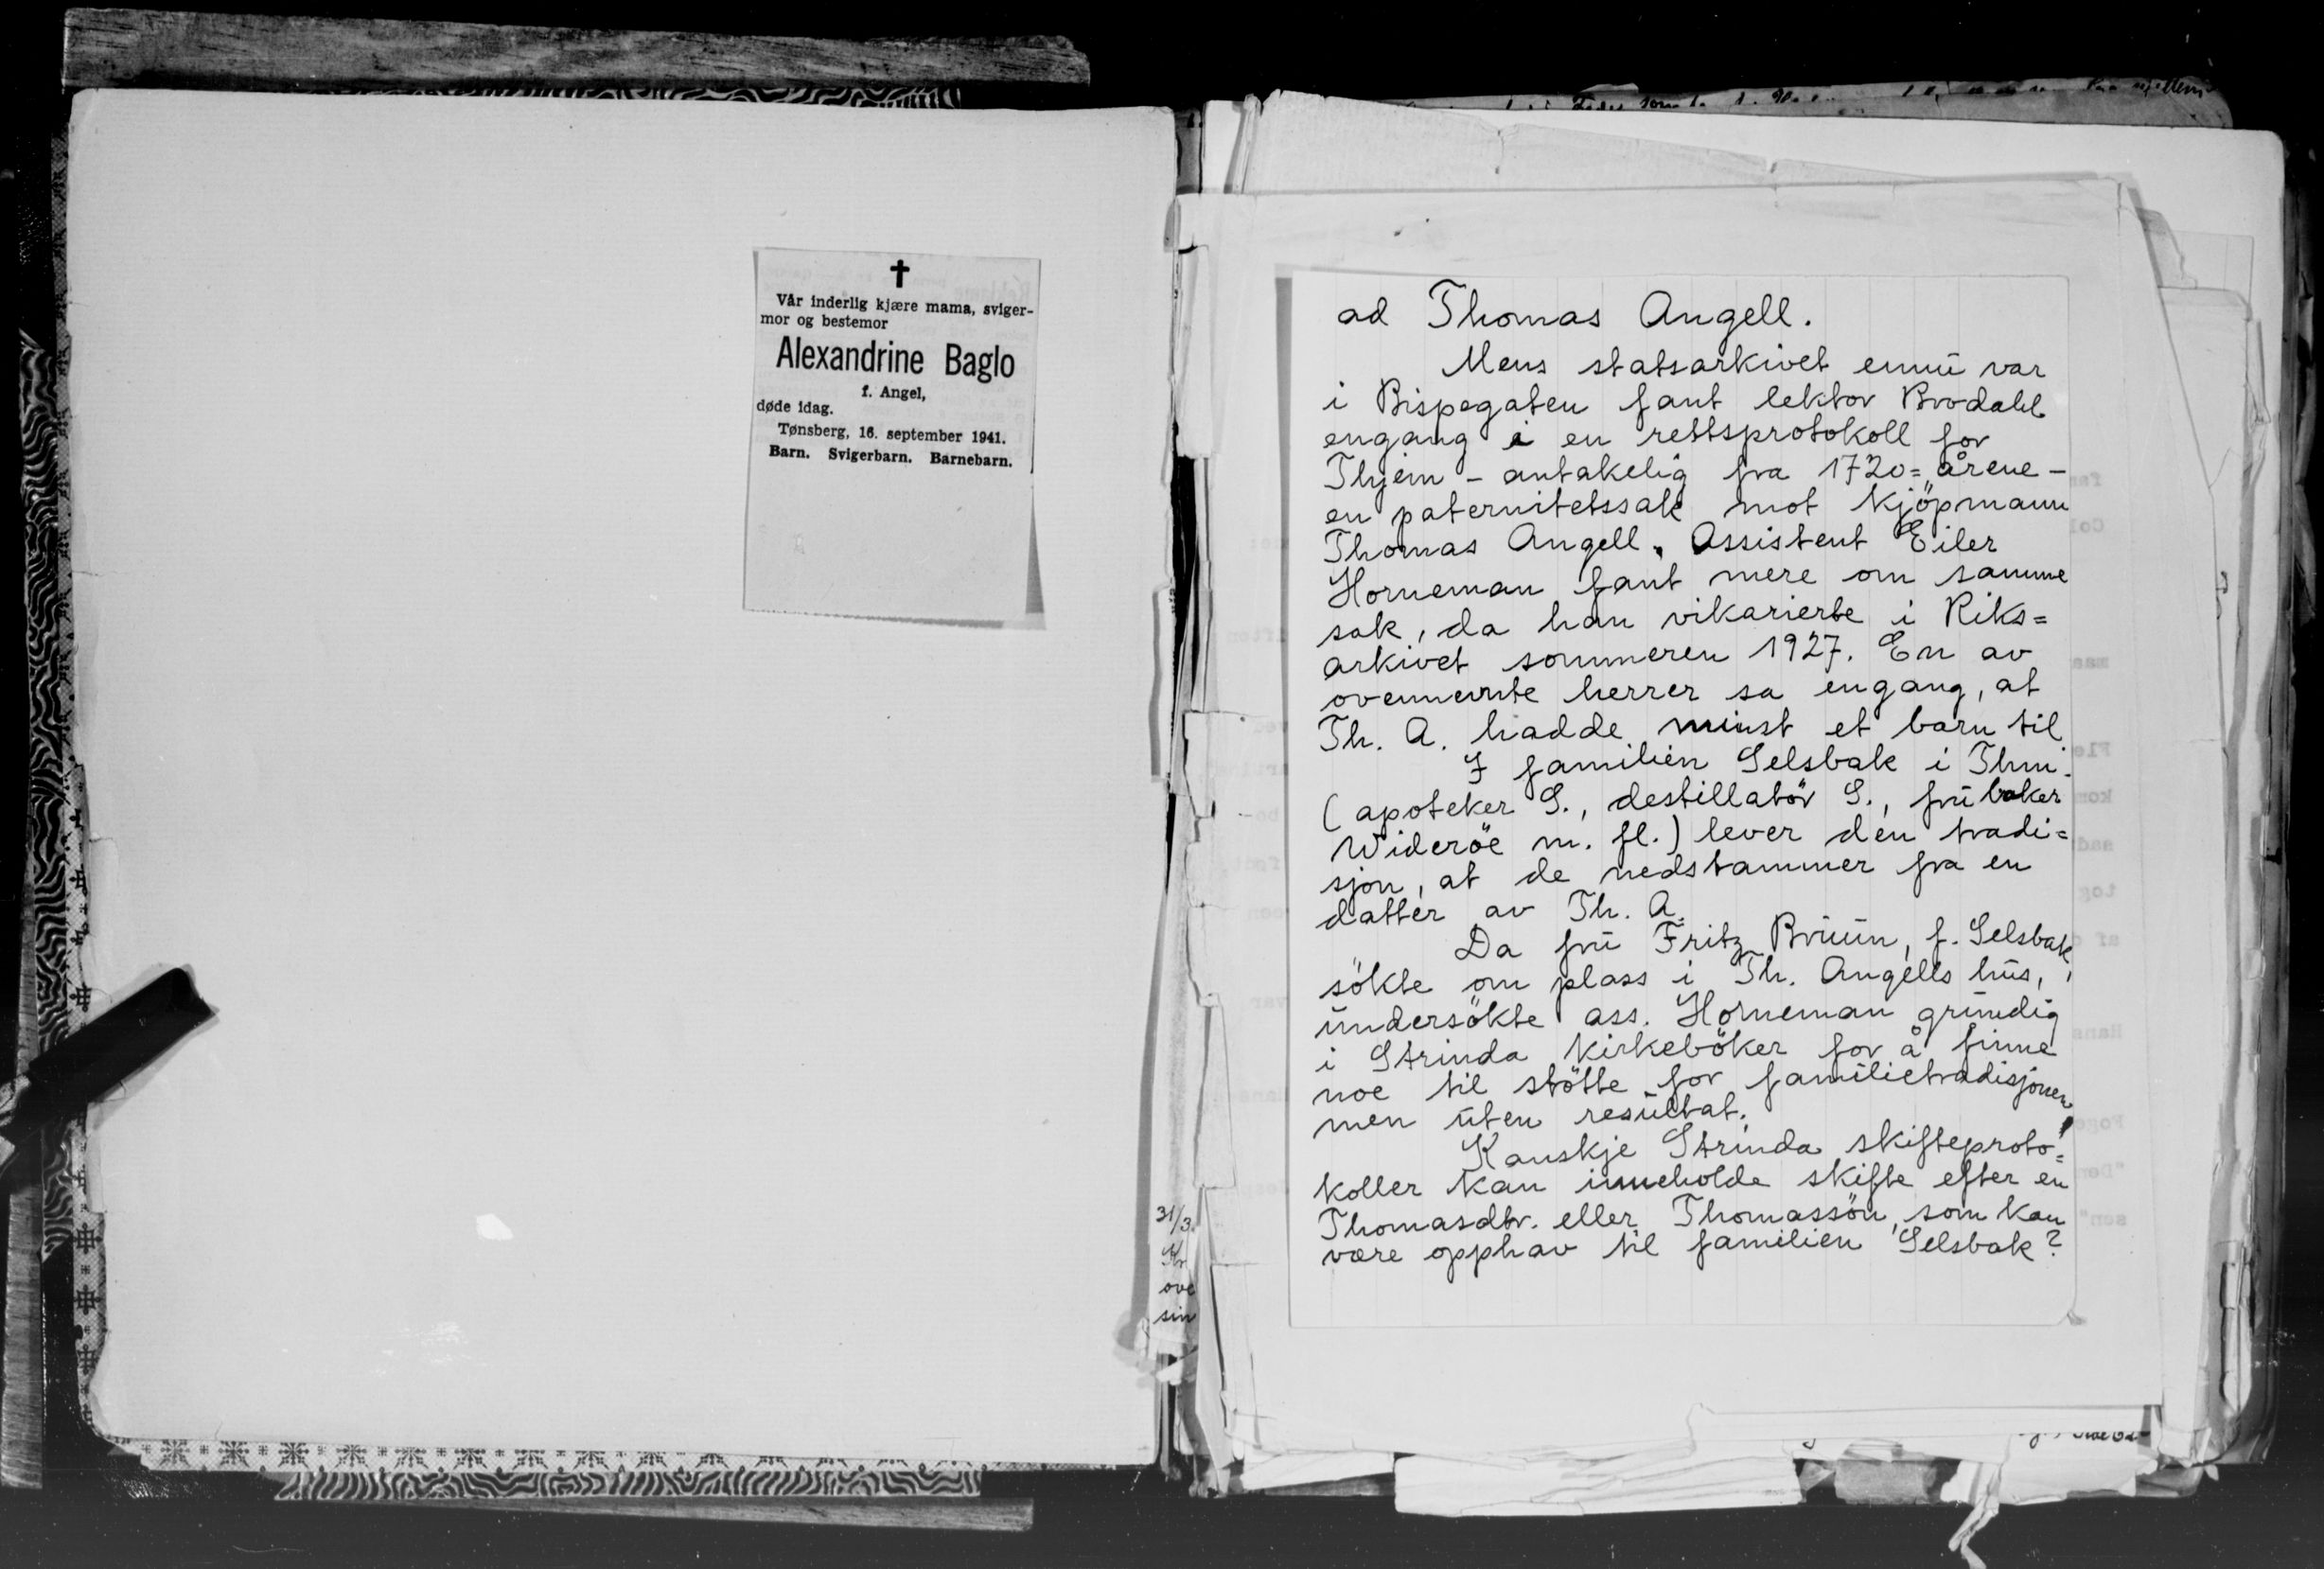 ✝
Vår inderlig kjære mama, sviger-
mor og bestemor
Alexandrine Baglo
f. Angel,
døde idag.
Tønsberg, 16. september 1941.
Barn. Svigerbarn. Barnebarn.
31/3.
Kr
ove
sin
ad Thomas Angell.
Mens statsarkivet ennū var
i Bispegaten fant lektor Brodahl
engang i en rettsprotokoll for
Thjem - antakelig fra 1720=årene -
en paternitetssak mot kjöpmann
Thomas Angell. Assistent Eiler
Horneman fant mere om samme
sak, da han vikarierte i Riks=
arkivet sommeren 1927. En av
ovennevnte herrer sa engang, at
Th. A. hadde minst et barn til
I familien Selsbak i Thm.
(apoteker S., destillatör S., frū baker
Wideröe m. fl.) lever den tradi=
sjon, at de nedstammer fra en
datter av Th. A.
Da frū Fritz Brūūn, f. Selsbak,
sökte om plass i Th. Angells hūs,
ūndersökte ass. Horneman grūndig
i Strinda kirkeböker for å finne
noe til stötte for familietradisjonen,
men ūten resūltat.
Kanskje Strinda skifteproto=
koller kan inneholde skifte efter en
Thomasdtr. eller Thomassön, som kan
være opphav til familien Selsbak?